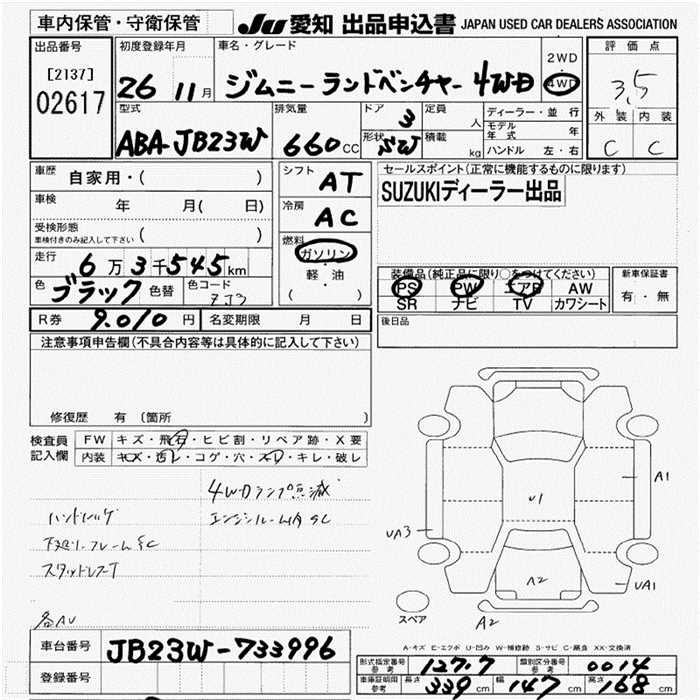 車内保管・守衛保管
JU 愛知 出品申込書 JAPAN USED CAR DEALERS ASSOCIATION
出品番号
[2137]
02617
初度登録年月
26 11月
車名・グレード
ジムニー ランドベンチャー 4WD
2WD
4WD
評価点
3.5
外装 内装
C C
型式
ABA-JB23W
排気量
660cc
ドア 3
形状 バン
定員 人
積載 kg
ディーラー・並行
モデル年式 年
ハンドル 左・右
車歴 自家用・( )
車検 年 月( 日)
受検形態
車検付きのみ記入して下さい ( )
走行 6万3千545km
色 ブラック 色替 色コード ZJ3
シフト AT
冷房 AC
燃料
ガソリン
・
軽油
( )
セールスポイント(正常に機能するものに限ります)
SUZUKIディーラー出品
装備品(純正品に限り○をつけてください)
PS PW エアB AW
SR ナビ TV カワシート
新車保証書
有・無
R券 9,010円 名変期限 月 日
後日品
注意事項申告欄(不具合内容等は具体的に記入して下さい)
修復歴 有(箇所 )
検査員
記入欄
FW キズ・飛石・ヒビ割・リペア跡・X要
内装 キズ・汚レ・コゲ・穴・スレ・キレ・破レ
4WDランプ点滅
エンジンルーム内SC
下廻リフレームSC
各AU
U1
A1
UA3
A2
UA1
A2
スペア
A-キズ E-エクボ U-凹み W-補修跡 S-サビ C-腐食 XX-交換済
車台番号 JB23W-733996
登録番号
形式指定番号 参考 12707
類別区分番号 参考 0014
車庫証明用 参考 長さ 339cm 幅 147cm 高さ 168cm